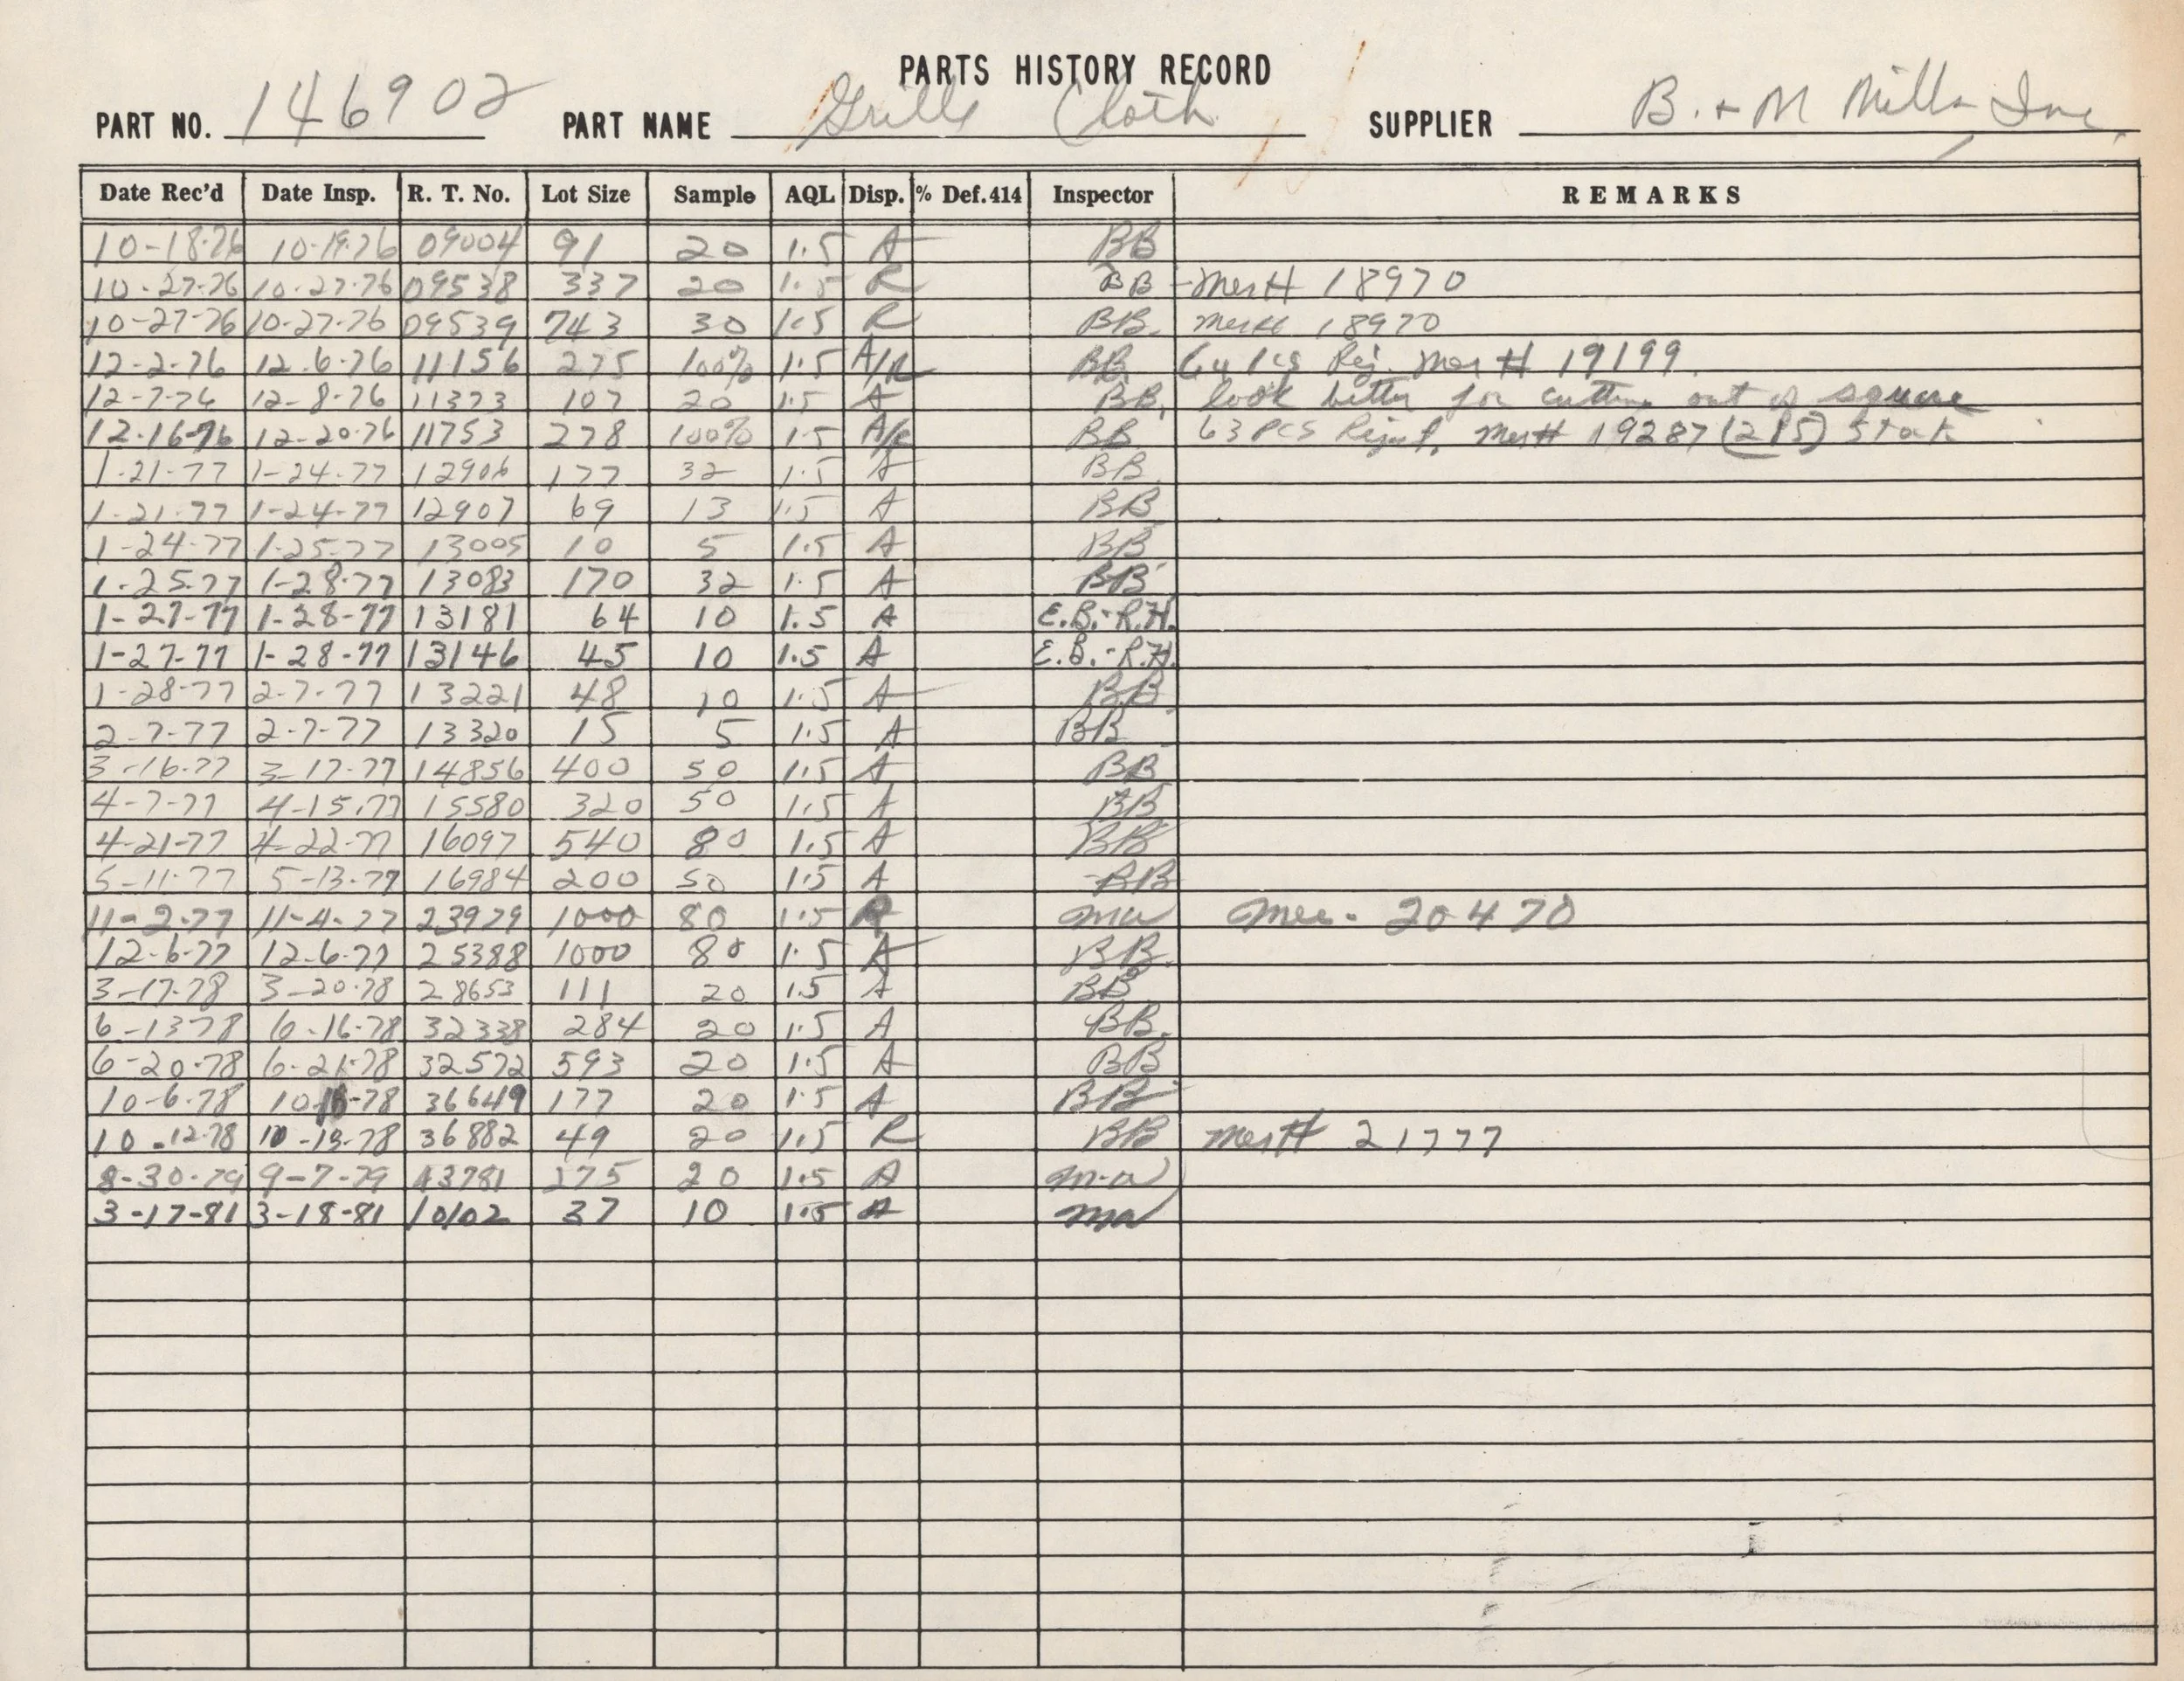 PARTS HISTORY RECORD
PART NO. 146902 PART NAME Grille Cloth SUPPLIER B. + M Mills, Inc.
Date Rec'd Date Insp. R. T. No. Lot Size Sample AQL Disp. % Def. 414 Inspector REMARKS
10-18-76 10-19-76 09004 91 20 1.5 A BB
10-27-76 10-27-76 09538 337 20 1.5 R BB - Mer# 18970
10-27-76 10-27-76 09539 743 30 1.5 R BB. Mer# 18970
12-2-76 12-6-76 11156 275 100% 1.5 A/R BB. 64 pcs Rej. Mer # 19199
12-7-76 12-8-76 11373 107 20 1.5 A BB. look better for cutting out of square
12-16-76 12-20-76 11753 278 100% 1.5 A/R BB 63 PCS Reject. Mer# 19287 (215) Stock
1-21-77 1-24-77 12906 177 32 1.5 A BB
1-21-77 1-24-77 12907 69 13 1.5 A BB
1-24-77 1-25-77 13005 10 5 1.5 A BB
1-25-77 1-28-77 13083 170 32 1.5 A BB
1-27-77 1-28-77 13181 64 10 1.5 A E.B.-R.H.
1-27-77 1-28-77 13146 45 10 1.5 A E.B.-R.H.
1-28-77 2-7-77 13221 48 10 1.5 A B.B.
2-7-77 2-7-77 13320 15 5 1.5 A BB
3-16-77 3-17-77 14856 400 50 1.5 A BB
4-7-77 4-15-77 15580 320 50 1.5 A BB
4-21-77 4-22-77 16097 540 80 1.5 A BB
5-11-77 5-13-77 16984 200 50 1.5 A BB
11-2-77 11-4-77 23979 1000 80 1.5 R ma Mer. 20470
12-6-77 12-6-77 25388 1000 80 1.5 A BB.
3-17-78 3-20-78 28653 111 20 1.5 A BB
6-13-78 6-16-78 32338 284 20 1.5 A BB.
6-20-78 6-21-78 32572 593 20 1.5 A BB
10-6-78 36649 177 20 1.5 A BB
10-12-78 10-13-78 36882 49 20 1.5 R BB Mer# 21777
8-30-79 9-7-79 43781 275 20 1.5 A m-a
3-17-81 3-18-81 10102 37 10 1.5 A ma